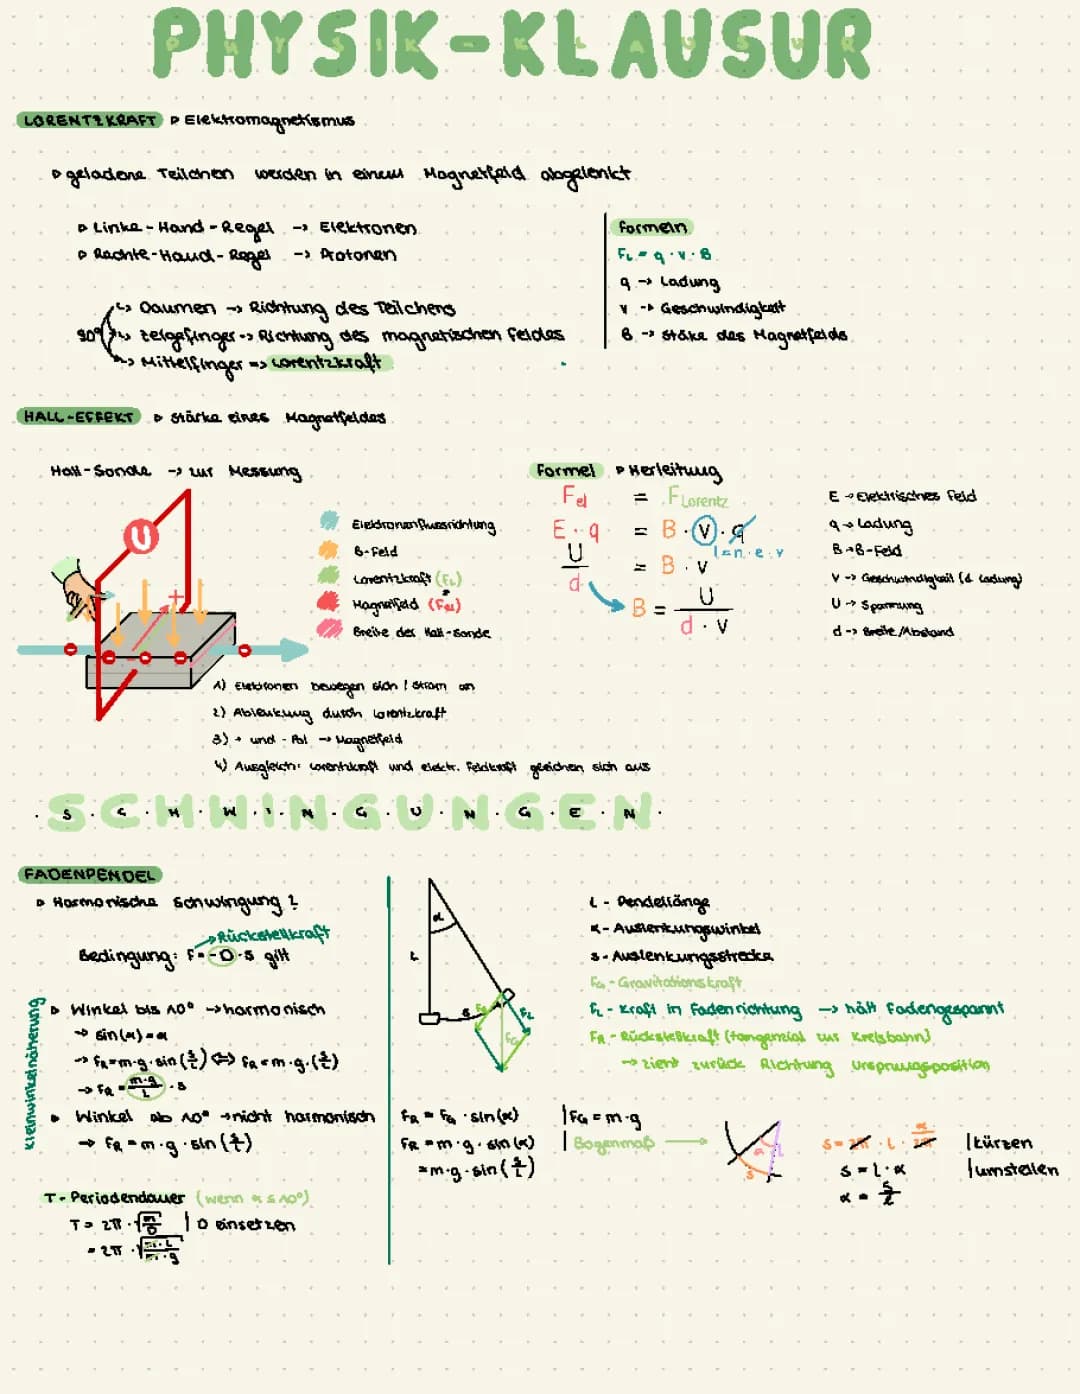 PHYSIK-KLAUSUR
LORENTZKRAFT ▹ Elektromagnetismus
▹ geladene Teilchen werden in einem Magnetfeld abgelenkt
▹ Linke-Hand-Regel -> Elektronen
▹ Rechte-Hand-Regel -> Protonen
90°
↳ Daumen -> Richtung des Teilchens
↳ Zeigefinger -> Richtung des magnetischen Feldes
↳ Mittelfinger => Lorentzkraft
Formeln
FL = q · v · B
q -> Ladung
v -> Geschwindigkeit
B -> Stäke des Magnetfelds
HALL-EFFEKT ▹ Stärke eines Magnetfeldes
Hall-Sonde -> zur Messung
U
+
-
Elektronenflussrichtung
B-Feld
Lorentzkraft (FL)
Magnetfeld (Fel)
Breite der Hall-Sonde
Formel ▹ Herleitung
Fel = FLorentz
E · q = B · v · q
I = n · e · v
U/d = B · v
B = U/(d · v)
E -> Elektrisches Feld
q -> Ladung
B -> B-Feld
v -> Geschwindigkeit (d. Ladung)
U -> Spannung
d -> Breite/Abstand
1) Elektronen bewegen sich / Strom an
2) Ablenkung durch Lorentzkraft
3) + und - Pol -> Magnetfeld
4) Ausgleich: Lorentzkraft und elektr. Feldkraft gleichen sich aus
SCHWINGUNGEN
FADENPENDEL
▹ Harmonische Schwingung?
-> Rückstellkraft
Bedingung: F = -D · s gilt
Kleinwinkelnäherung
▹ Winkel bis 10° -> harmonisch
-> sin(α) = α
-> FR = m·g·sin(s/L) <=> FR = m·g·(s/L)
-> FR = m·g/L · s
▹ Winkel ab 10° -> nicht harmonisch
-> FR = m·g·sin(s/L)
T - Periodendauer (wenn α ≤ 10°)
T = 2π · √(m/D) | D einsetzen
= 2π · √(m·L/m·g)
α
L
s
FR
FL
FG
L - Pendellänge
α - Auslenkungswinkel
s - Auslenkungsstrecke
FG - Gravitationskraft
FL - Kraft in Fadenrichtung -> hält Faden gespannt
FR - Rückstellkraft (tangenzial zur Kreisbahn)
-> zieht zurück Richtung Ursprungsposition
FR = FG · sin(α) | FG = m·g
FR = m·g·sin(α) | Bogenmaß ->
= m·g·sin(s/L)
α
L
s
s = 2π · L · α/2π | kürzen
s = L · α | umstellen
α = s/L